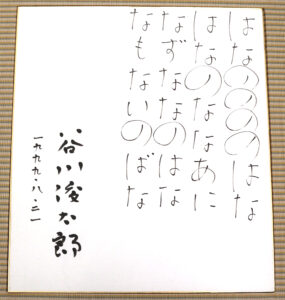 はなののののはな
はなのななあに
なずななのはな
なもないのばな
谷川俊太郎
一九九九・八・二一